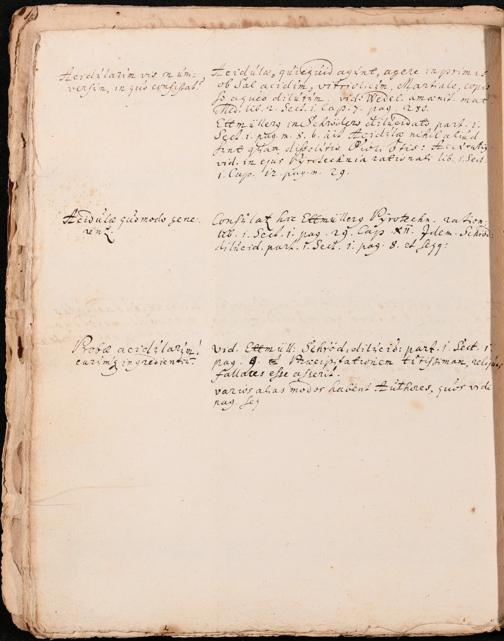 Acidularum vis in uni-
versum, in quo consistat.
Acidulæ, quidquid agunt, agere inprimis
ob Sal acidum, vitriolicum, Martiale, copio
aqueo dilutum. vid. Wedel. amœnit. mat
Med. lib. 2. Sect. 1. Cap. 7. pag. 280.
Ettmüllerg in Schrödero dilucidato part. 1.
Sect. 1. pag. m. 8. b. ait Acidulæ nihil aliud
sint quam
vid. in ejus Pyrotechnia rationali lib. 1. Sect.
1. Cap. 12. pag. m. 29.
Acidulæ quomodo gene-
rent
Consulat hic Ettmüllerg Pyrotechn. ration:
lib. 1. Sect. 1. pag. 29. Cap. XII. Idem Schröd
dilucid. part. 1. Sect. 1. pag. 8. et seqq:
Probæ acidularum,
earumq ingredientia.
vid. Ettmüll: Schröd. dilucid: part. 1. Sect. 1.
pag. Præcipitationem reliquas
fallaces esse asserit.
varios alios modos habent Authores, quos vide
pag. seq